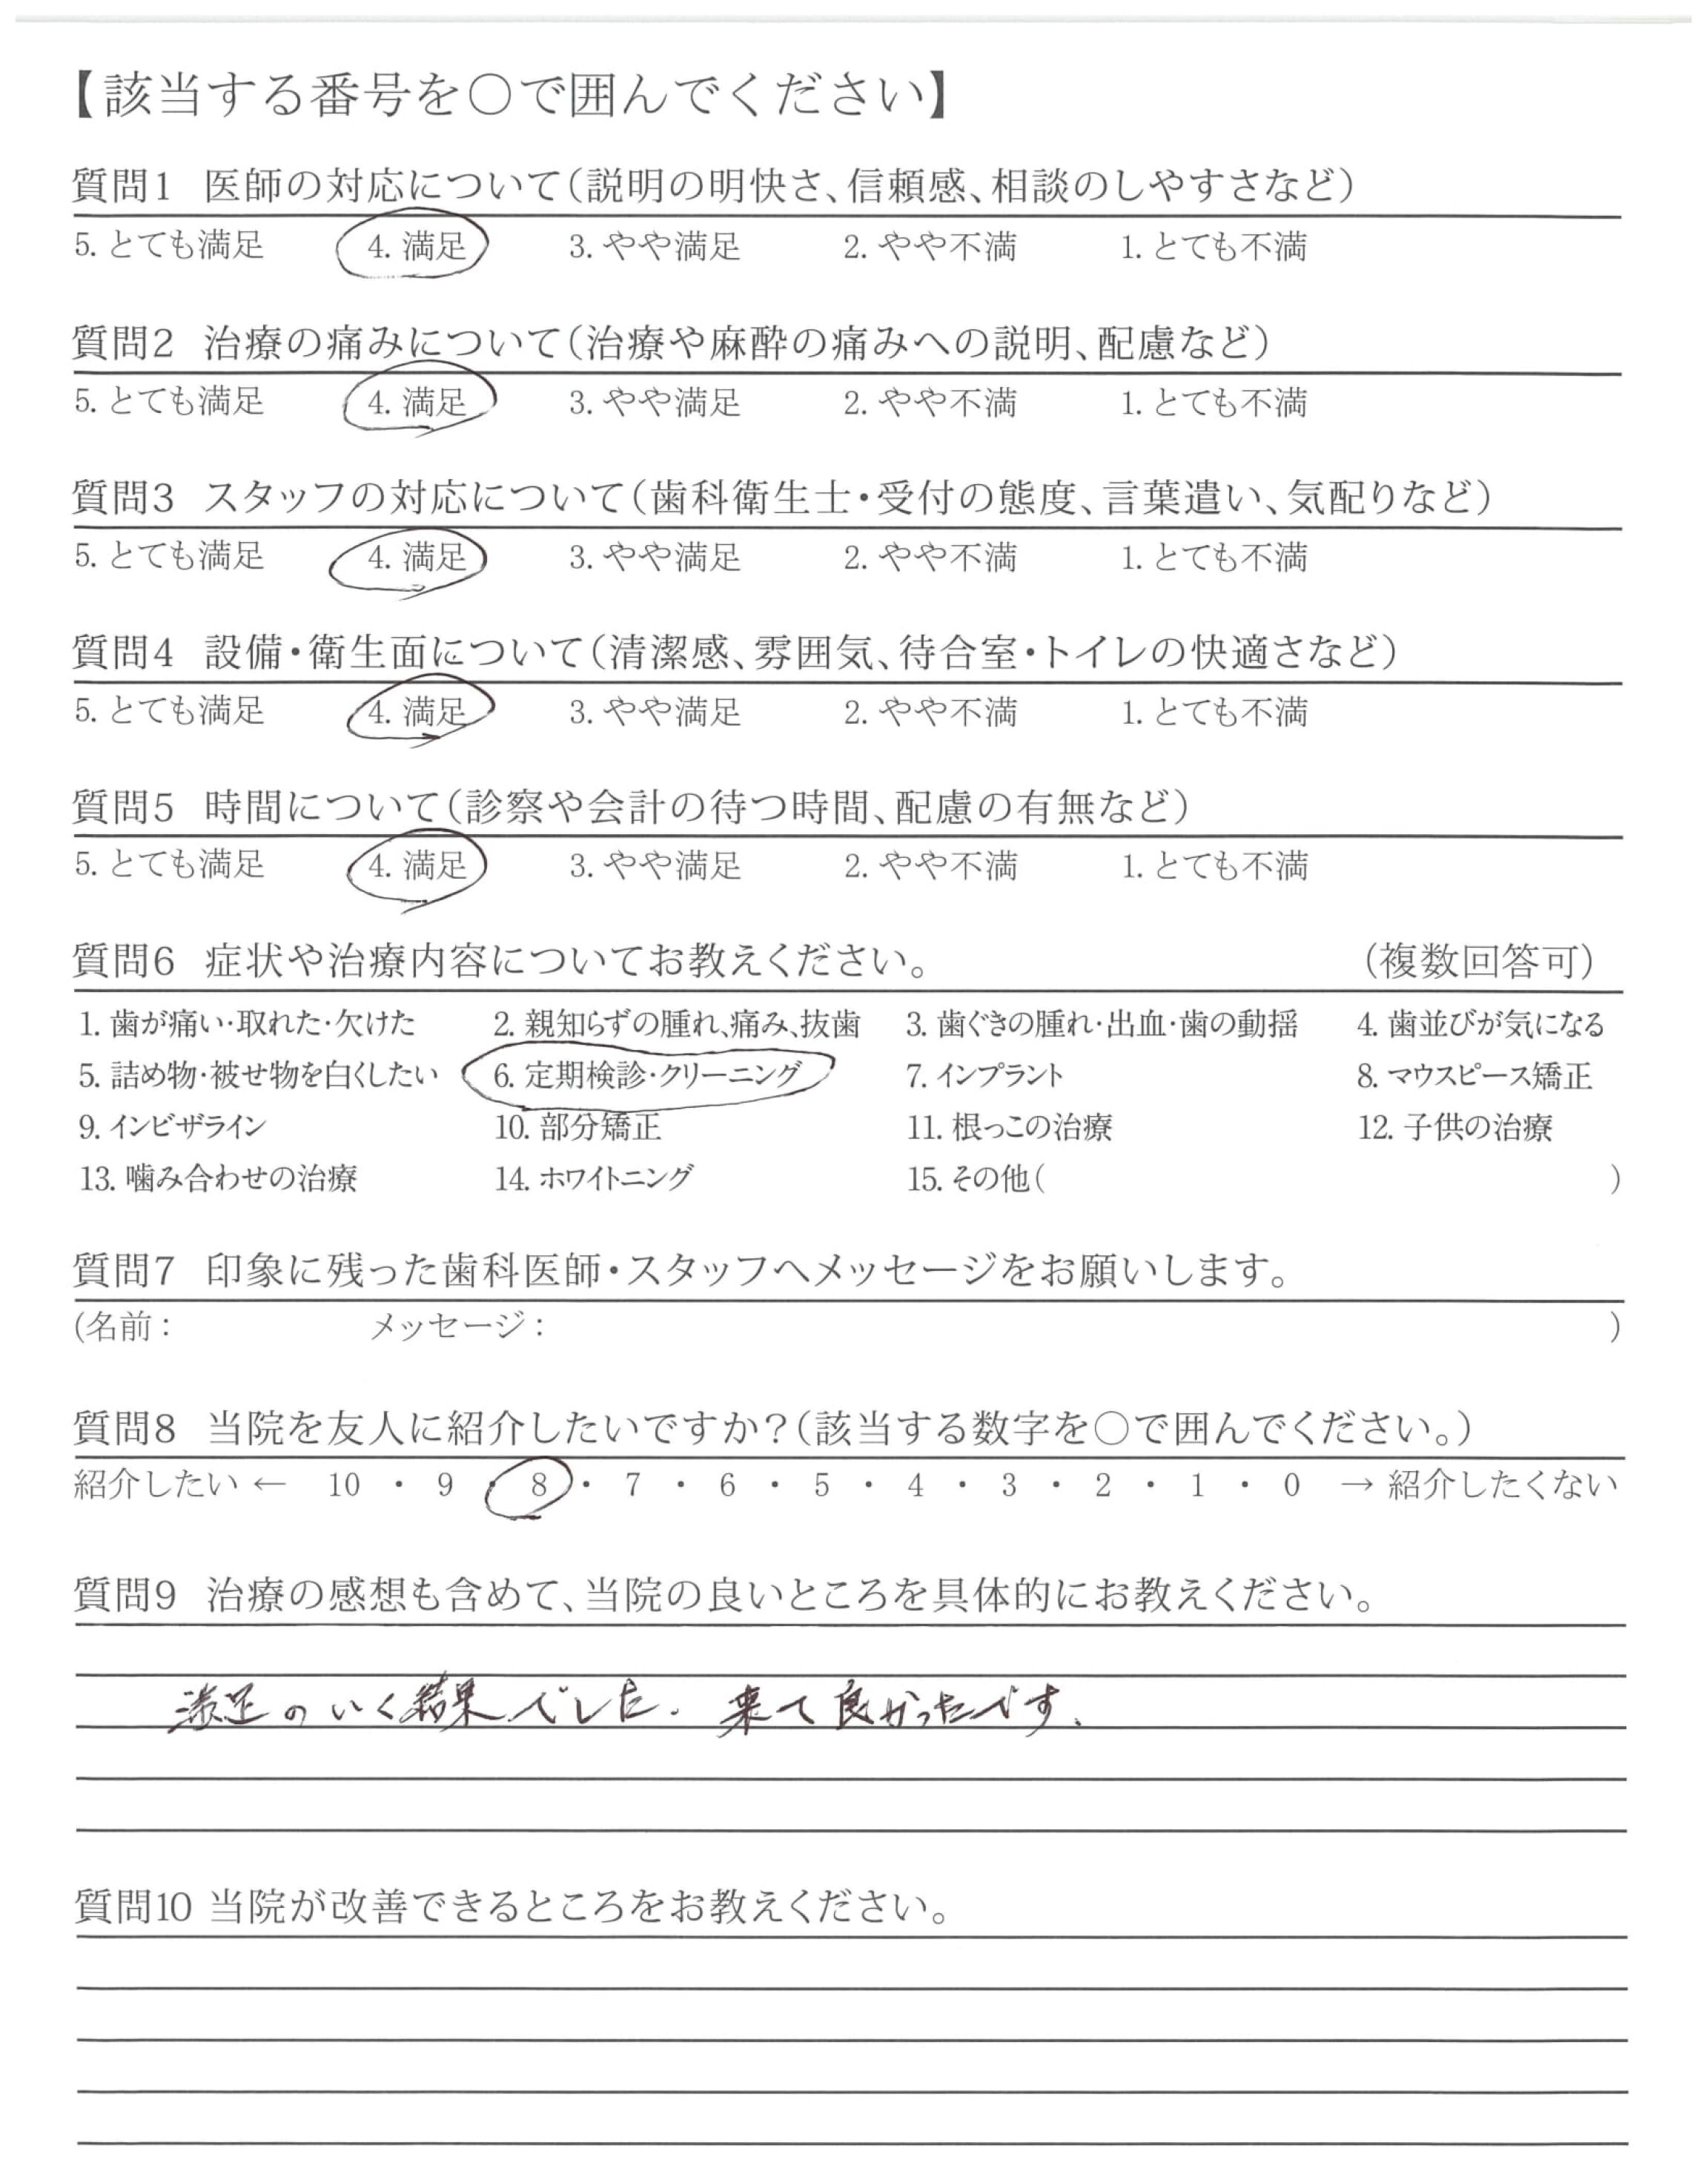 【該当する番号を○で囲んでください】
質問1 医師の対応について（説明の明快さ、信頼感、相談のしやすさなど）
5. とても満足 4. 満足 3. やや満足 2. やや不満 1. とても不満
質問2 治療の痛みについて（治療や麻酔の痛みへの説明、配慮など）
5. とても満足 4. 満足 3. やや満足 2. やや不満 1. とても不満
質問3 スタッフの対応について（歯科衛生士・受付の態度、言葉遣い、気配りなど）
5. とても満足 4. 満足 3. やや満足 2. やや不満 1. とても不満
質問4 設備・衛生面について（清潔感、雰囲気、待合室・トイレの快適さなど）
5. とても満足 4. 満足 3. やや満足 2. やや不満 1. とても不満
質問5 時間について（診察や会計の待つ時間、配慮の有無など）
5. とても満足 4. 満足 3. やや満足 2. やや不満 1. とても不満
質問6 症状や治療内容についてお教えください。 （複数回答可）
1. 歯が痛い・取れた・欠けた 2. 親知らずの腫れ、痛み、抜歯 3. 歯ぐきの腫れ・出血・歯の動揺 4. 歯並びが気になる
5. 詰め物・被せ物を白くしたい 6. 定期検診・クリーニング 7. インプラント 8. マウスピース矯正
9. インビザライン 10. 部分矯正 11. 根っこの治療 12. 子供の治療
13. 噛み合わせの治療 14. ホワイトニング 15. その他（ ）
質問7 印象に残った歯科医師・スタッフへメッセージをお願いします。
(名前： メッセージ： )
質問8 当院を友人に紹介したいですか？（該当する数字を○で囲んでください。）
紹介したい ← 10 ・ 9 ・ 8 ・ 7 ・ 6 ・ 5 ・ 4 ・ 3 ・ 2 ・ 1 ・ 0 → 紹介したくない
質問9 治療の感想も含めて、当院の良いところを具体的にお教えください。
満足のいく結果でした。来て良かったです。
質問10 当院が改善できるところをお教えください。